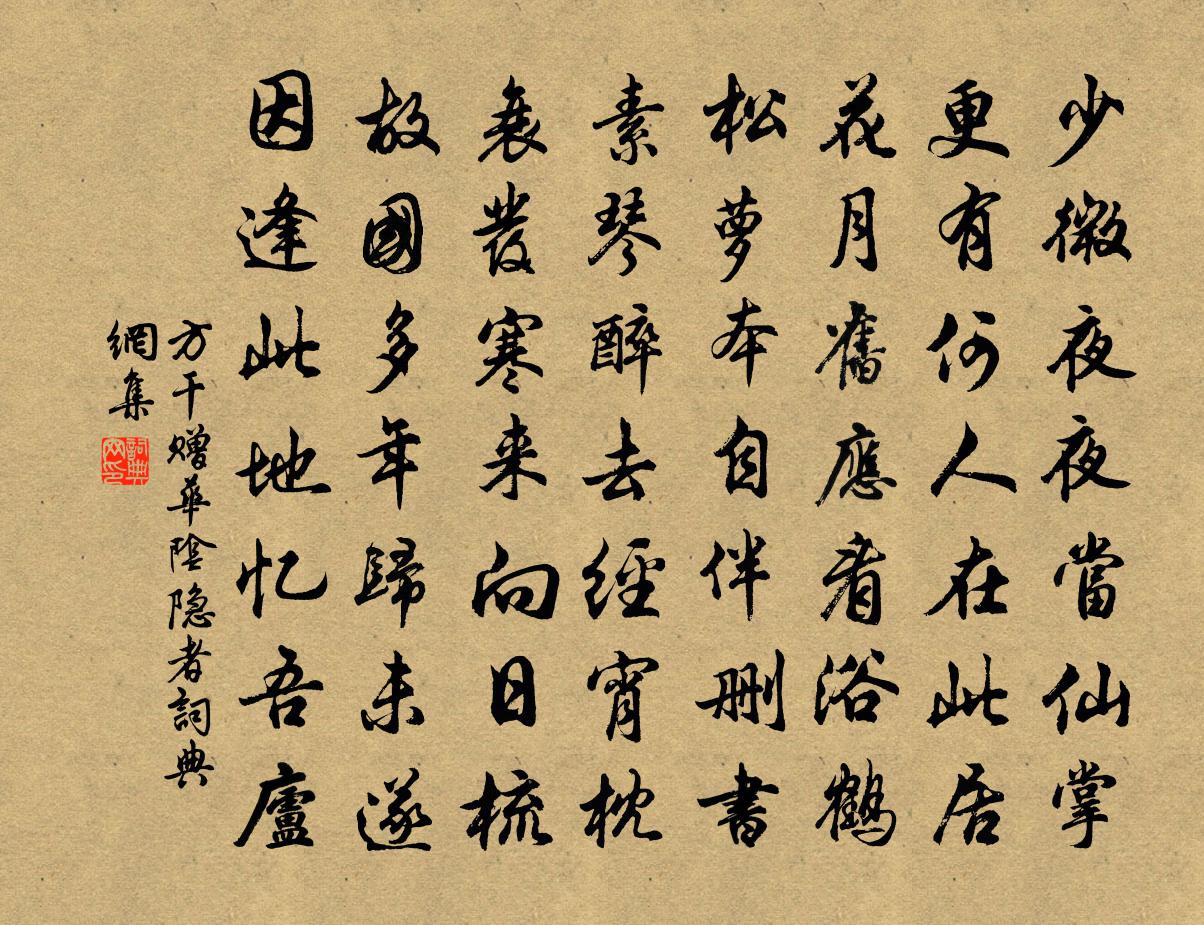 少微夜夜當仙掌
更有何人在此居
花月舊應看浴鶴
松夢本自伴刪書
素琴醉去經宵枕
衰發寒来向日梳
故國多年歸未遂
因逢此地忆吾廬
方干赠華陰隐者詞典
網集
詞典网印